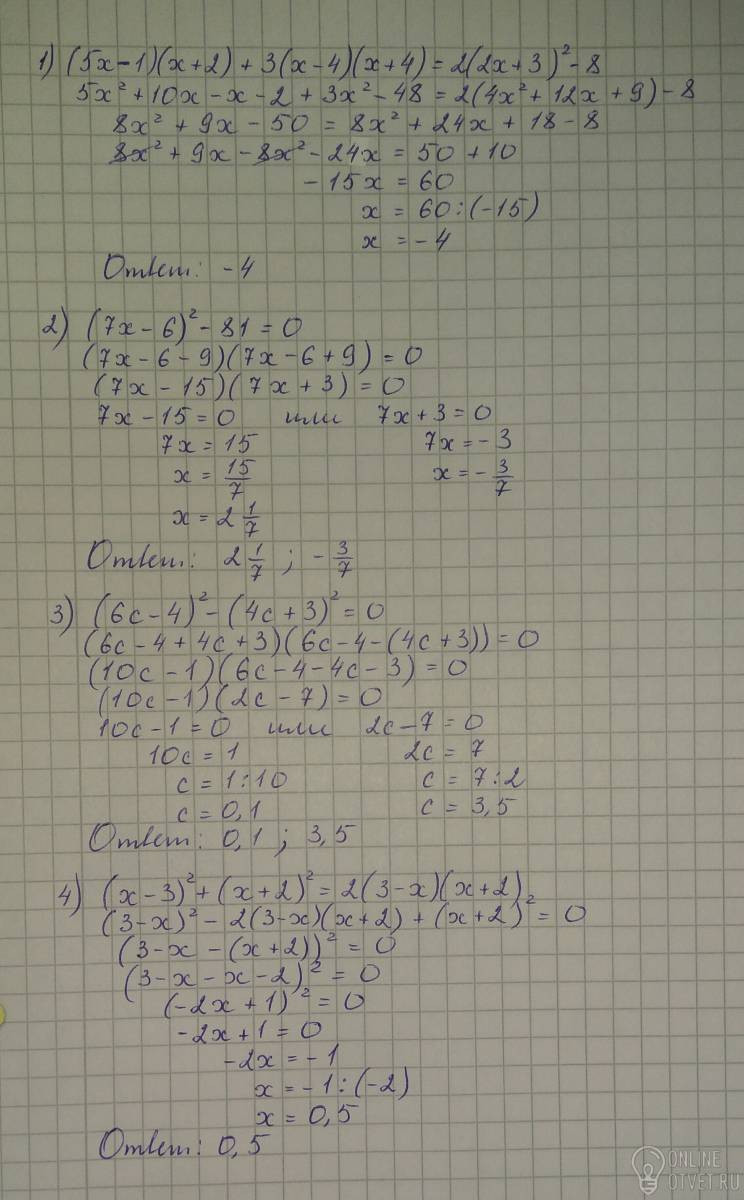 1) (5x-1)(x+2)+3(x-4)(x+4)=2(2x+3)²-8
5x²+10x-x-2+3x²-48=2(4x²+12x+9)-8
8x²+9x-50=8x²+24x+18-8
8x²+9x-8x²-24x=50+10
-15x=60
x=60:(-15)
x=-4
Ответ: -4
2) (7x-6)²-81=0
(7x-6-9)(7x-6+9)=0
(7x-15)(7x+3)=0
7x-15=0 или 7x+3=0
7x=15 7x=-3
x=15/7 x=-3/7
x=2 1/7
Ответ: 2 1/7; -3/7
3) (6c-4)²-(4c+3)²=0
(6c-4+4c+3)(6c-4-(4c+3))=0
(10c-1)(6c-4-4c-3)=0
(10c-1)(2c-7)=0
10c-1=0 или 2c-7=0
10c=1 2c=7
c=1:10 c=7:2
c=0,1 c=3,5
Ответ: 0,1; 3,5
4) (x-3)²+(x+2)²=2(3-x)(x+2)
(3-x)²-2(3-x)(x+2)+(x+2)²=0
(3-x-(x+2))²=0
(3-x-x-2)²=0
(-2x+1)²=0
-2x+1=0
-2x=-1
x=-1:(-2)
x=0,5
Ответ: 0,5
ONLINE
OTVET.RU